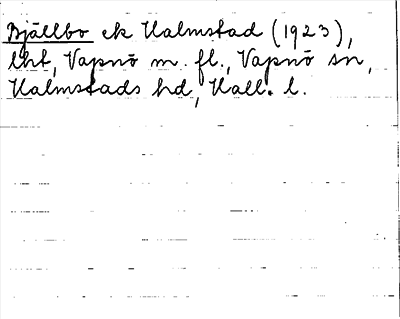 Bjällbo ek Halmstad (1923),
lht, Vapnö m. fl., Vapnö sn,
Halmstads hd, Hall. l.